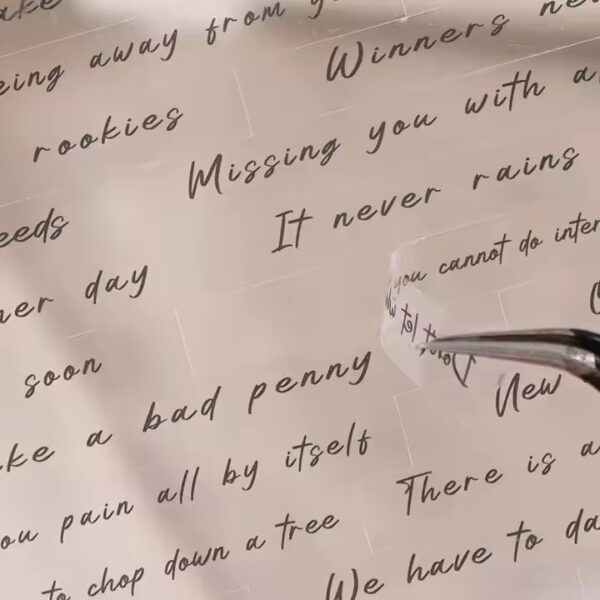 eing away from
Winners
rookies
Missing you with a
It never rains
eeds
you cannot do inter
her day
Don't let
soon
New
ke a bad penny
ou pain all by itself
There is a
to chop down a tree
We have to da